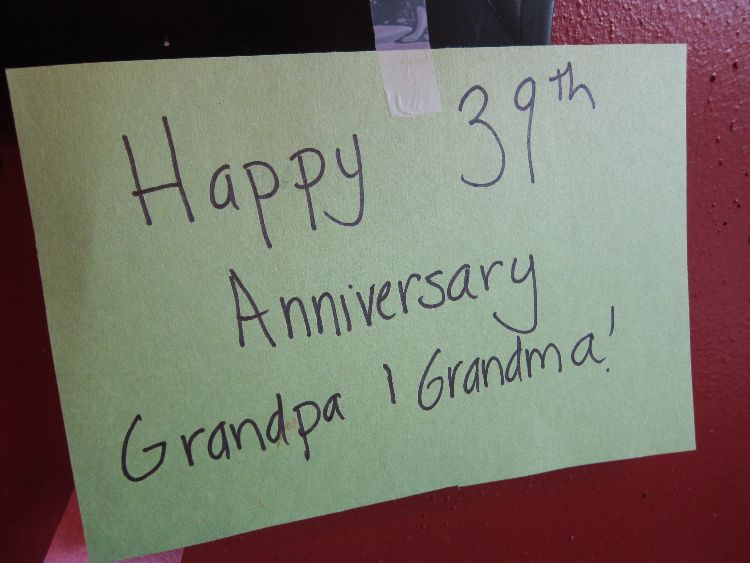 Happy 39th
Anniversary
Grandpa | Grandma!